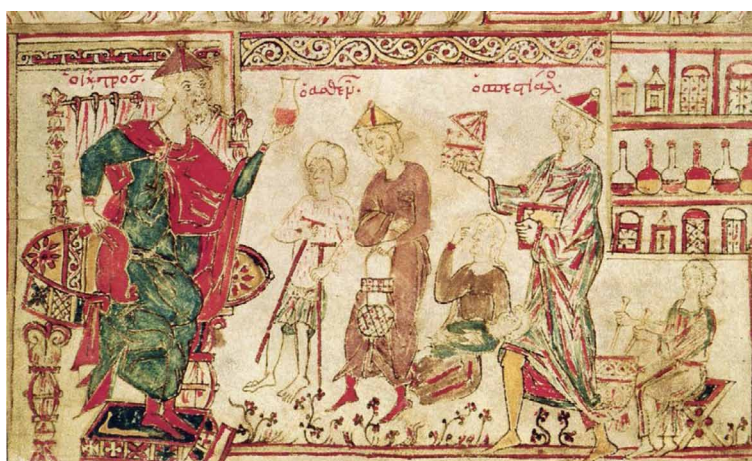 ὁ ἰατρος.
ὁ ἀσθεν.
ὁ σπετιαλ.